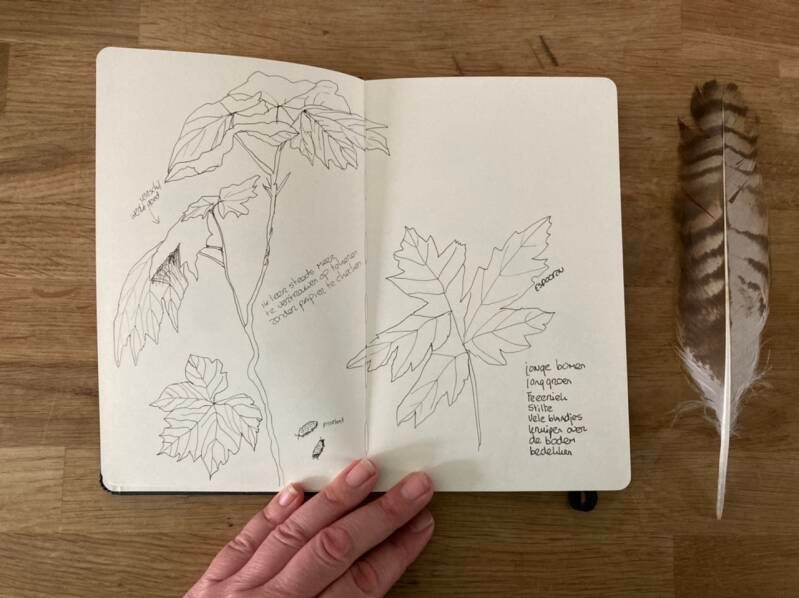 ik leer steeds meer
te vertrouwen op tekenen
zonder papier te checken
jonge bomen
jong groen
Feeëriek
stilte
vele blaadjes
kruipen over
de bodem
bedekken